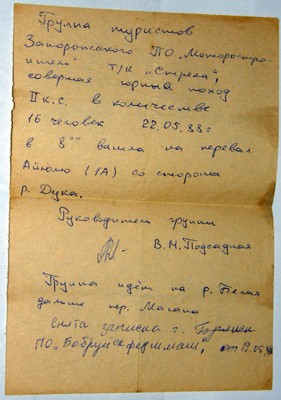 Группа туристов
Запорожского ПО „Моторостро-
итель" т/к „Стрела",
совершая горный поход
II к.с. в количестве
16 человек 22.05.88 г
в 8⁰⁰ вышла на перевал
Айюлю (1А) со стороны
р. Дука.
Руководитель группы
В.Н. Подсадная
Группа идёт на р. Белая
далее пер. Магана
Снята записка г.
ПО „Бобруйскферммаш", от 19.05.88